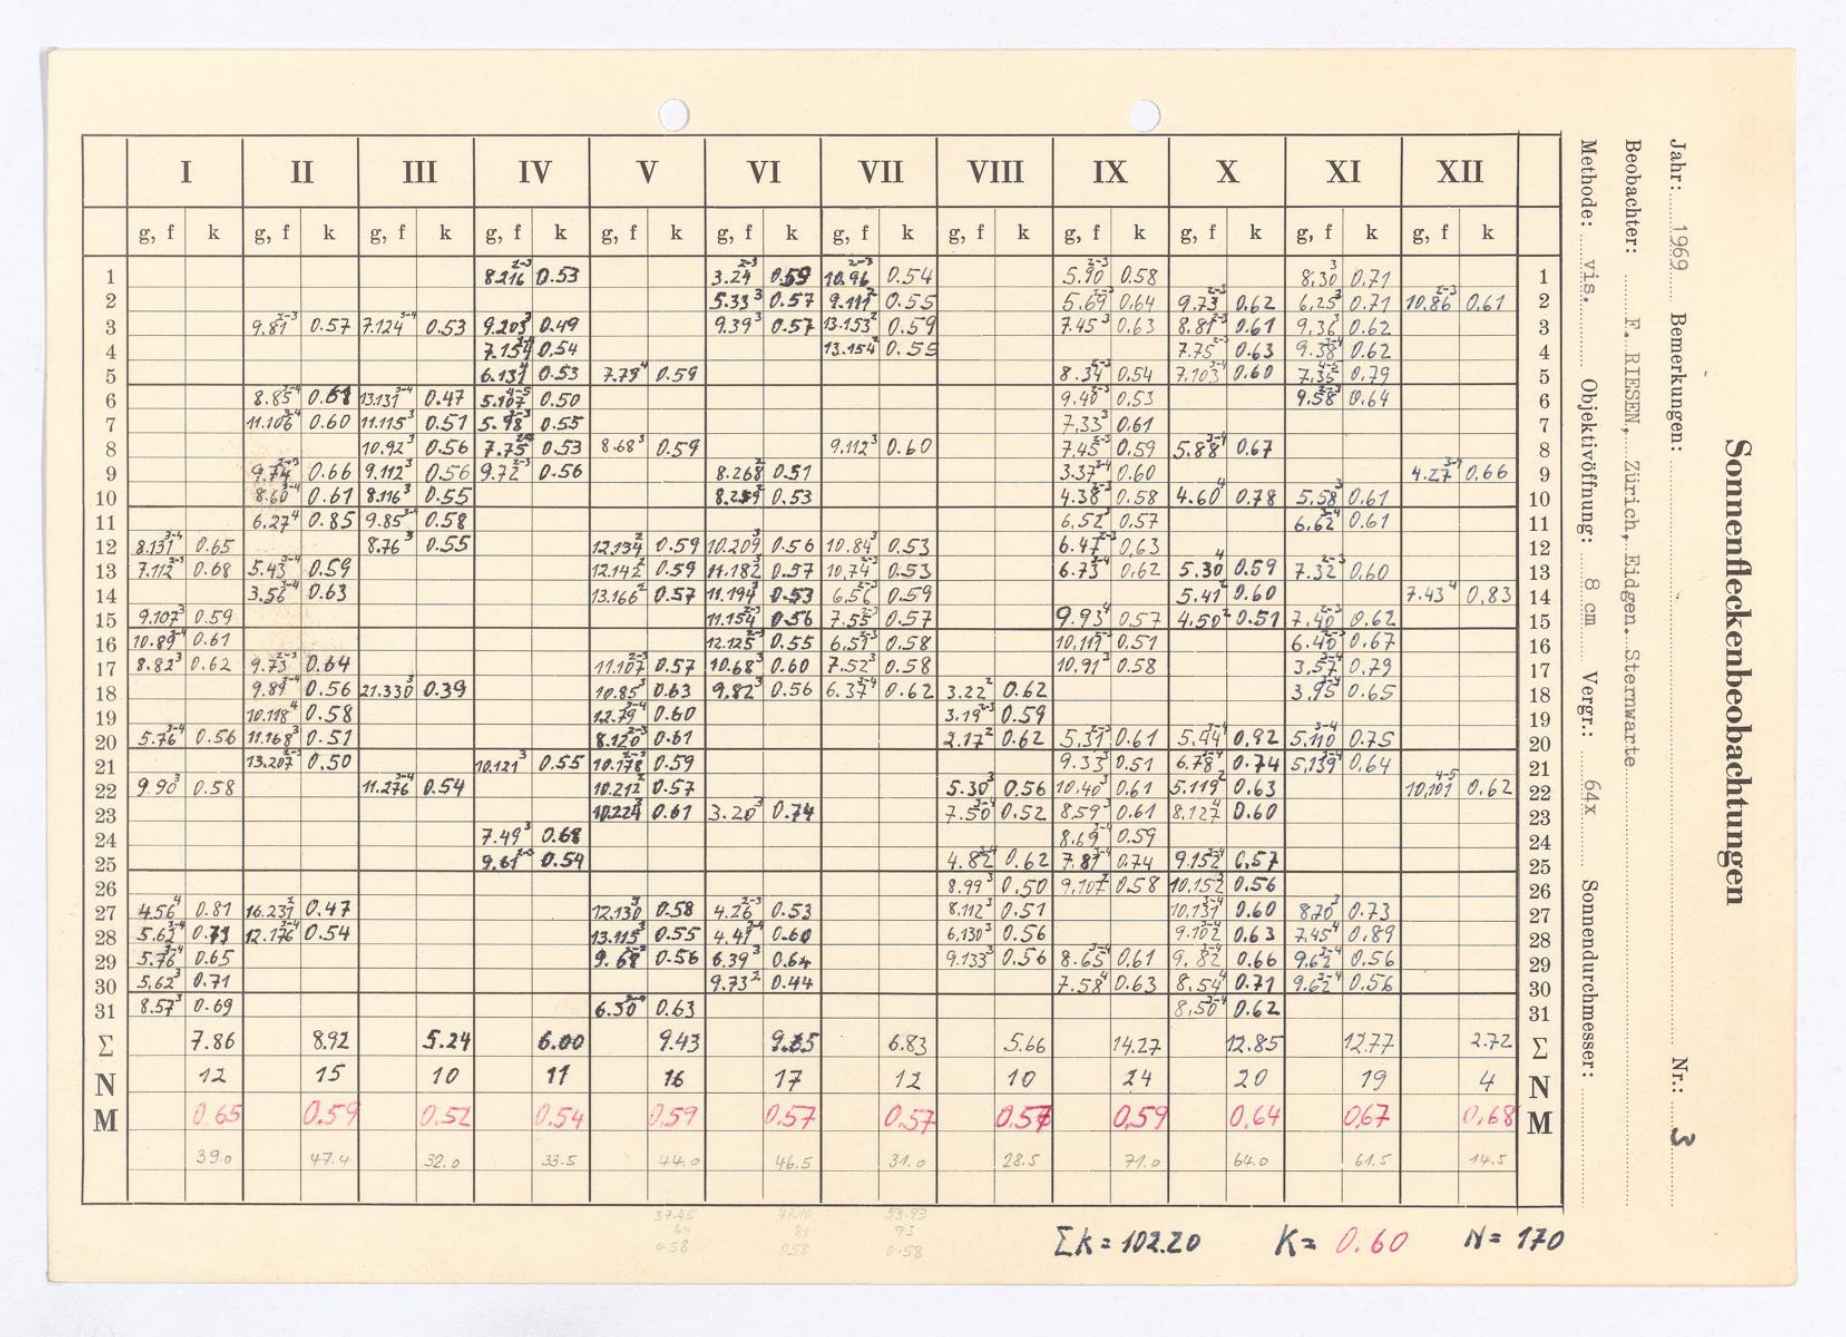 Sonnenfleckenbeobachtungen
Jahr: 1969 Bemerkungen: Nr.: 3
Beobachter: F. RIESEN, Zürich, Eidgen. Sternwarte
Methode: vis. Objektivöffnung: 8 cm Vergr.: 64x Sonnendurchmesser:
I II III IV V VI VII VIII IX X XI XII
g, f k g, f k g, f k g, f k g, f k g, f k g, f k g, f k g, f k g, f k g, f k g, f k
1 8.216 2-3 0.53 3.24 2-3 0.59 10.96 2-3 0.54 5.90 2-3 0.58 8.30 3 0.71 1
2 5.33 3 0.57 9.111 2 0.55 5.69 2-3 0.64 9.73 2-3 0.62 6.25 3 0.71 10.86 2-3 0.61 2
3 9.81 2-3 0.57 7.124 3-4 0.53 9.203 3 0.49 9.39 3 0.57 13.153 2 0.59 7.45 3 0.63 8.81 2-3 0.61 9.36 3 0.62 3
4 7.154 0.54 13.154 2 0.55 7.75 2-3 0.63 9.38 0.62 4
5 6.131 0.53 7.79 4 0.59 8.34 0.54 7.103 0.60 7.35 0.79 5
6 8.85 3-4 0.61 13.131 3-4 0.47 5.107 4-5 0.50 9.40 2-3 0.53 9.58 0.64 6
7 11.106 3-4 0.60 11.115 3 0.51 5.98 0.55 7.33 3 0.61 7
8 10.92 3 0.56 7.75 0.53 8.68 3 0.59 9.112 3 0.60 7.45 2-3 0.59 5.88 3-4 0.67 8
9 9.74 2-3 0.66 9.112 3 0.56 9.72 2-3 0.56 8.268 2 0.51 3.37 3-4 0.60 4.27 3-4 0.66 9
10 8.60 3-4 0.61 8.116 3 0.55 8.259 2 0.53 4.38 0.58 4.60 4 0.78 5.58 3 0.61 10
11 6.27 4 0.85 9.85 3-4 0.58 6.52 3 0.57 6.62 0.61 11
12 8.131 3-4 0.65 8.76 3 0.55 12.134 2 0.59 10.209 3 0.56 10.84 3 0.53 6.47 2-3 0.63 12
13 7.112 0.68 5.43 3-4 0.59 12.142 2 0.59 11.182 3 0.57 10.74 2-3 0.53 6.73 3-4 0.62 5.30 4 0.59 7.32 2-3 0.60 13
14 3.56 3-4 0.63 13.166 2 0.57 11.194 3 0.53 6.56 2-3 0.59 5.41 2 0.60 7.43 4 0.83 14
15 9.107 3 0.59 11.154 2-3 0.56 7.55 2-3 0.57 9.93 4 0.57 4.50 2 0.51 7.40 2-3 0.62 15
16 10.89 3-4 0.61 12.125 2-3 0.55 6.51 2-3 0.58 10.119 2-3 0.51 6.40 0.67 16
17 8.82 3 0.62 9.73 2-3 0.64 11.107 2-3 0.57 10.68 3 0.60 7.52 3 0.58 10.91 3 0.58 3.57 3-4 0.79 17
18 9.89 3-4 0.56 21.330 3 0.39 10.85 3 0.63 9.82 3 0.56 6.37 3-4 0.62 3.22 2 0.62 3.95 0.65 18
19 10.118 4 0.58 12.79 3-4 0.60 3.19 2-3 0.59 19
20 5.76 3-4 0.56 11.168 3 0.51 8.120 2-3 0.61 2.17 2 0.62 5.31 0.61 5.44 3-4 0.92 5.110 3-4 0.75 20
21 13.207 2-3 0.50 10.121 3 0.55 10.178 2-3 0.59 9.33 3 0.51 6.78 3-4 0.74 5.139 3-4 0.64 21
22 9.90 3 0.58 11.276 3-4 0.54 10.212 2 0.57 5.30 3 0.56 10.40 3 0.61 5.119 2 0.63 10.101 4-5 0.62 22
23 10.224 0.61 3.20 3 0.74 7.50 3-4 0.52 8.59 3 0.61 8.127 4 0.60 23
24 7.49 3 0.68 8.69 3-4 0.59 24
25 9.61 2-3 0.54 4.82 3-4 0.62 7.81 3-4 0.74 9.152 3-4 0.57 25
26 8.99 3 0.50 9.107 2 0.58 10.152 3 0.56 26
27 4.56 4 0.81 16.231 2 0.47 12.130 3 0.58 4.26 2-3 0.53 8.112 3 0.51 10.131 3-4 0.60 8.70 3 0.73 27
28 5.62 3-4 0.73 12.176 3-4 0.54 13.115 3 0.55 4.41 3-4 0.60 6.130 3 0.56 9.102 3-4 0.63 7.45 4 0.89 28
29 5.76 3-4 0.65 9.68 2-3 0.56 6.39 3 0.64 9.133 3 0.56 8.65 3-4 0.61 9.82 3-4 0.66 9.62 2-4 0.56 29
30 5.62 3 0.71 9.73 2 0.44 7.58 4 0.63 8.54 4 0.71 9.62 3-4 0.56 30
31 8.57 3 0.69 6.30 0.63 8.50 3-4 0.62 31
Σ 7.86 8.92 5.24 6.00 9.43 6.83 5.66 14.27 12.85 12.77 2.72 Σ
N 12 15 10 11 16 17 12 10 24 20 19 4 N
M 0.65 0.59 0.52 0.54 0.59 0.57 0.57 0.57 0.59 0.64 0.67 0.68 M
39.0 47.4 32.0 33.5 44.0 46.5 31.0 28.5 71.0 64.0 61.5 14.5
37.45 53.93
64 81 93
0.58 0.58 0.58
Σk = 102.20 K = 0.60 N = 170